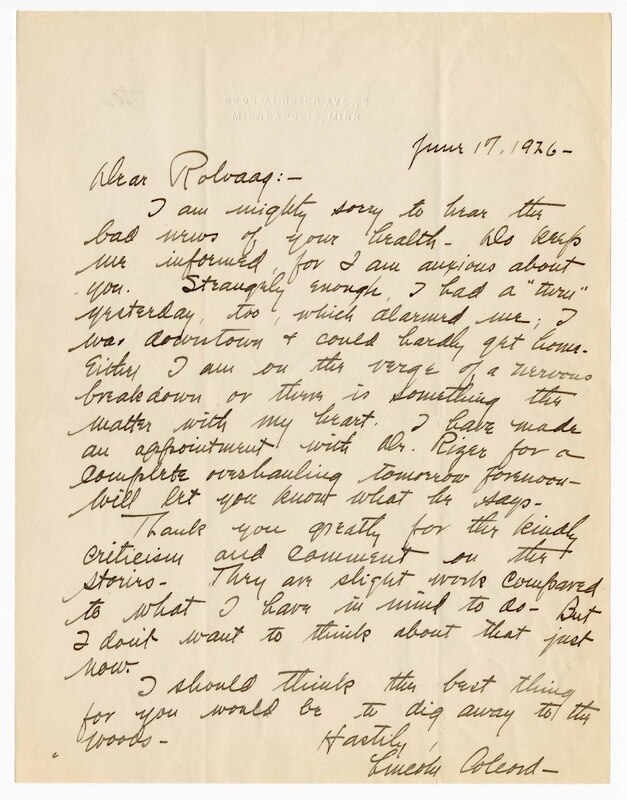 2208 ALDRICH AVE., S.
MINNEAPOLIS, MINN.
June 17, 1926 -
Dear Rolvaag: -
I am mighty sorry to hear the
bad news of your health - Do keep
me informed, for I am anxious about
you. Strangely enough, I had a "turn"
yesterday, too, which alarmed me; I
was downtown & could hardly get home.
Either I am on the verge of a nervous
breakdown or there is something the
matter with my heart. I have made
an appointment with Dr. Rizer for a
complete overhauling tomorrow forenoon -
Will let you know what he says -
Thank you greatly for the kindly
criticism and comment on the
stories - They are slight work compared
to what I have in mind to do - But
I don't want to think about that just
now.
I should think the best thing
for you would be to dig away to the
woods -
Hastily,
Lincoln Colcord -